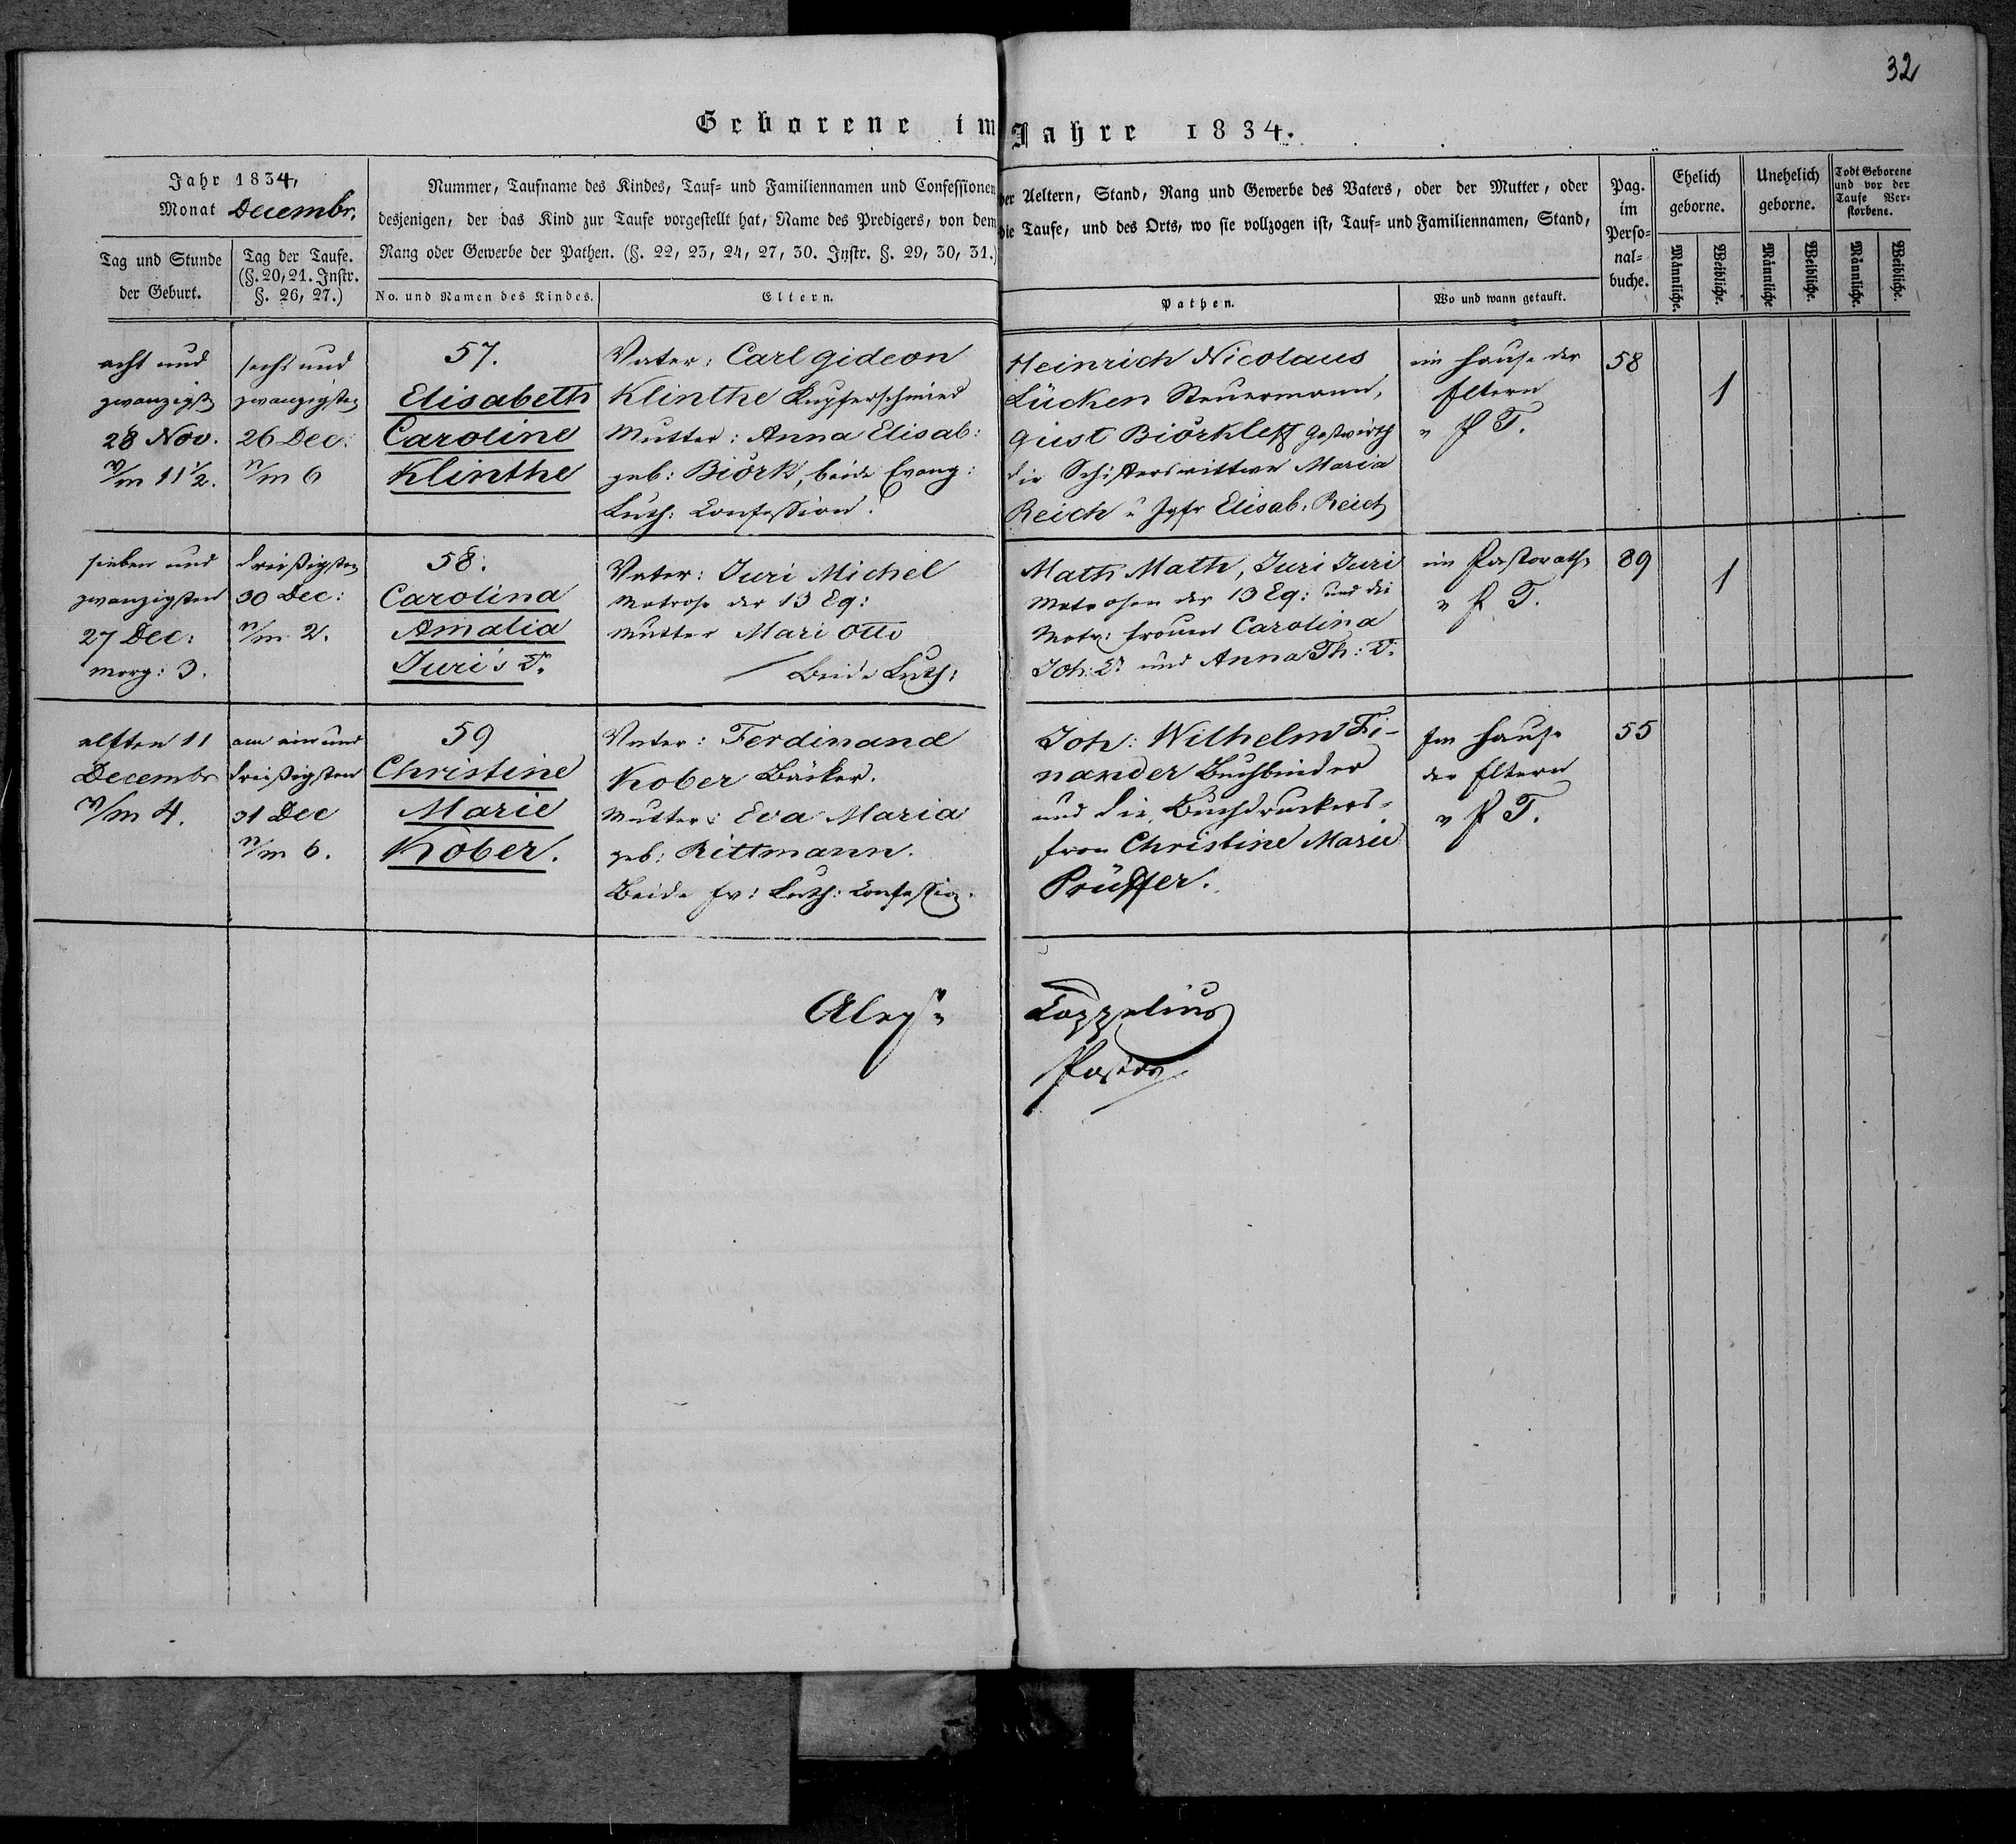 32
Geborene im Jahre 1834.
Jahr 1834,
Monat Decembr.
Tag und Stunde
der Geburt.
Tag der Taufe.
(§. 20, 21. Instr.
§. 26, 27.)
Nummer, Taufname des Kindes, Tauf- und Familiennamen und Confessionen der Aeltern, Stand, Rang und Gewerbe des Vaters, oder der Mutter, oder
desjenigen, der das Kind zur Taufe vorgestellt hat, Name des Predigers, von dem die Taufe, und des Orts, wo sie vollzogen ist, Tauf- und Familiennamen, Stand,
Rang oder Gewerbe der Pathen. (§. 22, 23, 24, 27, 30. Instr. §. 29, 30, 31.)
No. und Namen des Kindes.
Eltern.
Pathen.
Wo und wann getauft.
Pag.
im
Perso-
nal-
buche.
Ehelich
geborne.
Unehelich
geborne.
Todt Geborene
und vor der
Taufe Ver-
storbene.
Männliche.
Weibliche.
Männliche
Weibliche.
Männliche.
Weibliche.
acht und
zwanzigst
28 Nov.
v/m 11½.
sechs und
zwanzigsten
26 Dec:
n/m 6
57.
Elisabeth
Caroline
Klinthe
Vater: Carl Gideon
Klinthe Kupferschmied
Mutter: Anna Elisab:
geb: Biörk, beide Evang:
Luth: Confession.
Heinrich Nicolaus
Lücken Steuermann,
Gust Biörkleff Gastwirth
die Schifferswittwe Maria
Reich u Jgfr Elisab. Reich
im Hause der
Eltern
v P T.
58
1
sieben und
zwanzigsten
27 Dec:
morg: 3.
dreißigsten
30 Dec:
n/m 2.
58.
Carolina
Amalia
Juri's T.
Vater: Juri Michel
Matrose der 13 Eq:
Mutter Mari Otto
Beide Luth:
Math Math, Juri Juri
Matrosen der 13 Eq: und die
Matr: frauen Carolina
Joh: T. und Anna Th: T.
im Pastorath
v P T.
89
1
elften 11
Decembr
v/m 4.
am ein und
dreißigsten
31 Dec
n/m 6.
59
Christine
Marie
Kober.
Vater: Ferdinand
Kober Bäcker.
Mutter: Eva Maria
geb: Rittmann.
Beide Ev: Luth: Confession.
Joh: Wilhelm Fi-
nander Buchbinder
und die Buchdruckers-
frau Christine Marie
Prüffer.
Im Hause
der Eltern
v P T.
55
Coppelius
Pastor